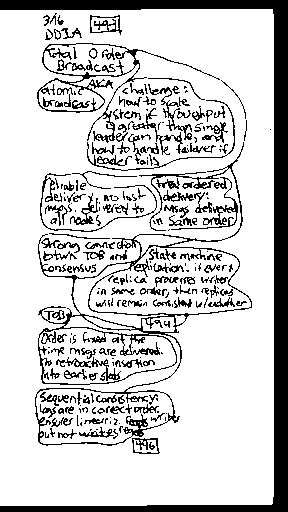 3/6
DDIA
493
Total Order
Broadcast
AKA
atomic
broadcast
challenge:
how to scale
system if throughput
is greater than single
leader can handle and
how to handle failover if
leader fails
reliable
delivery: no lost
msgs, delivered to
all nodes
total ordered
delivery:
msgs delivered
in same order
strong connection
btwn TOB and
consensus
state machine
replication: if every
replica processes writes
in same order, then replicas
will remain consistent w/eachother
494
TOB
Order is fixed at the
time msgs are delivered.
no retroactive insertion
into earlier slots
Sequential consistency:
logs are in correct order,
ensures lineariz. writes
but not reads
496